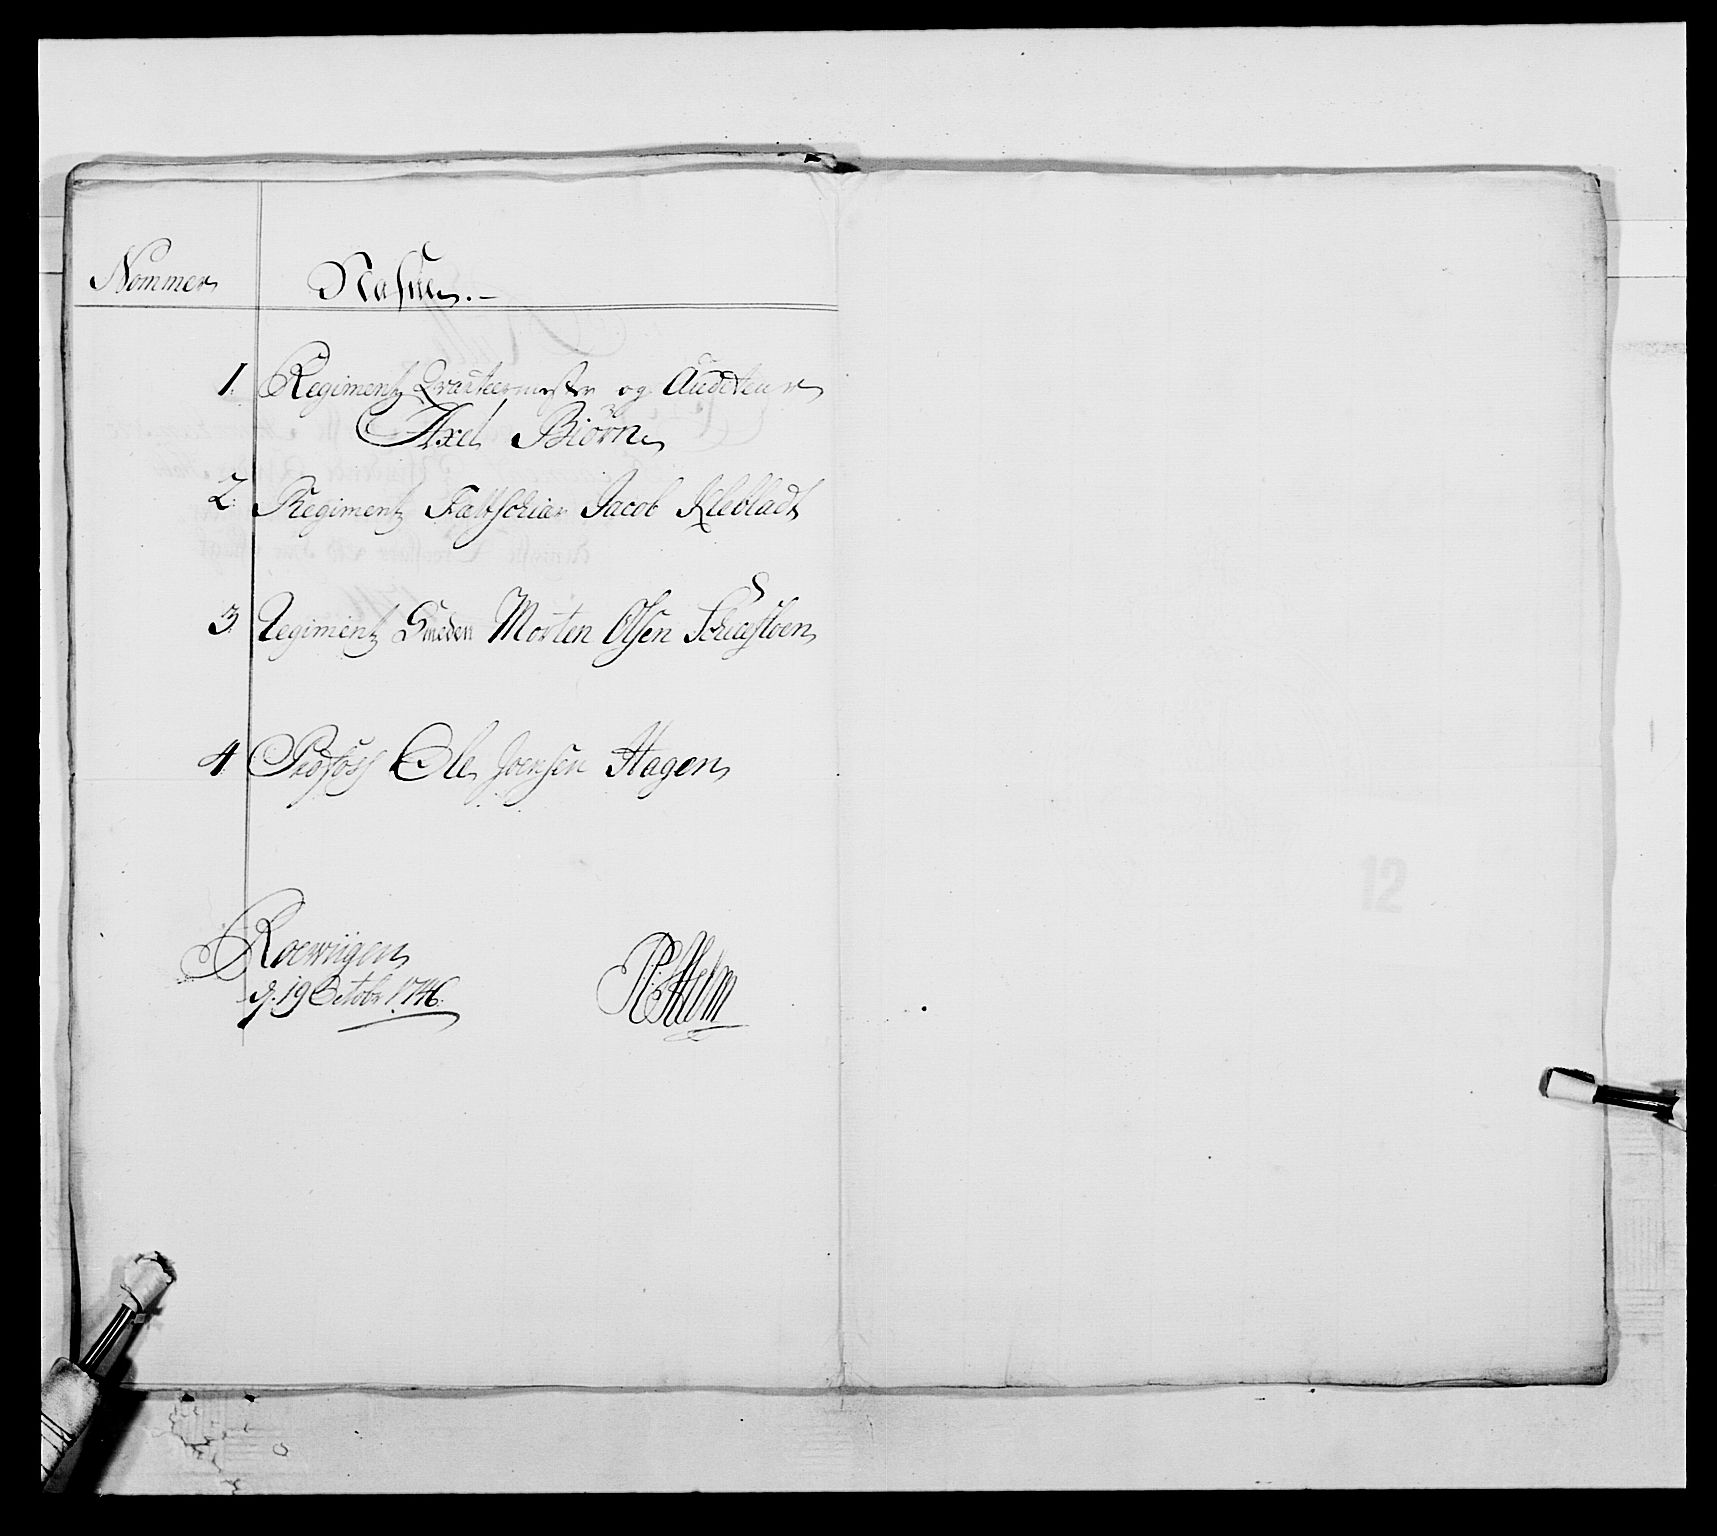 Nommer
Nafne.
1. Regiments Qvarteermester og Auditeur
Axel Biörn
2. Regiments Feltscher Jacob Klebladt
3. Regiments Smeden Morten Olsen
4. Profoss Ole Joensen Hagen
d. 19 Octobr 1746.
12